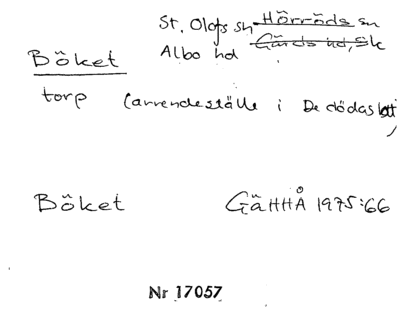 St. Olofs sn Hörröds sn
Albo hd Gärds hd, Sk
Böket
torp (arrendeställe i De dödas
Böket GäHHÅ 1975:66
Nr 17057